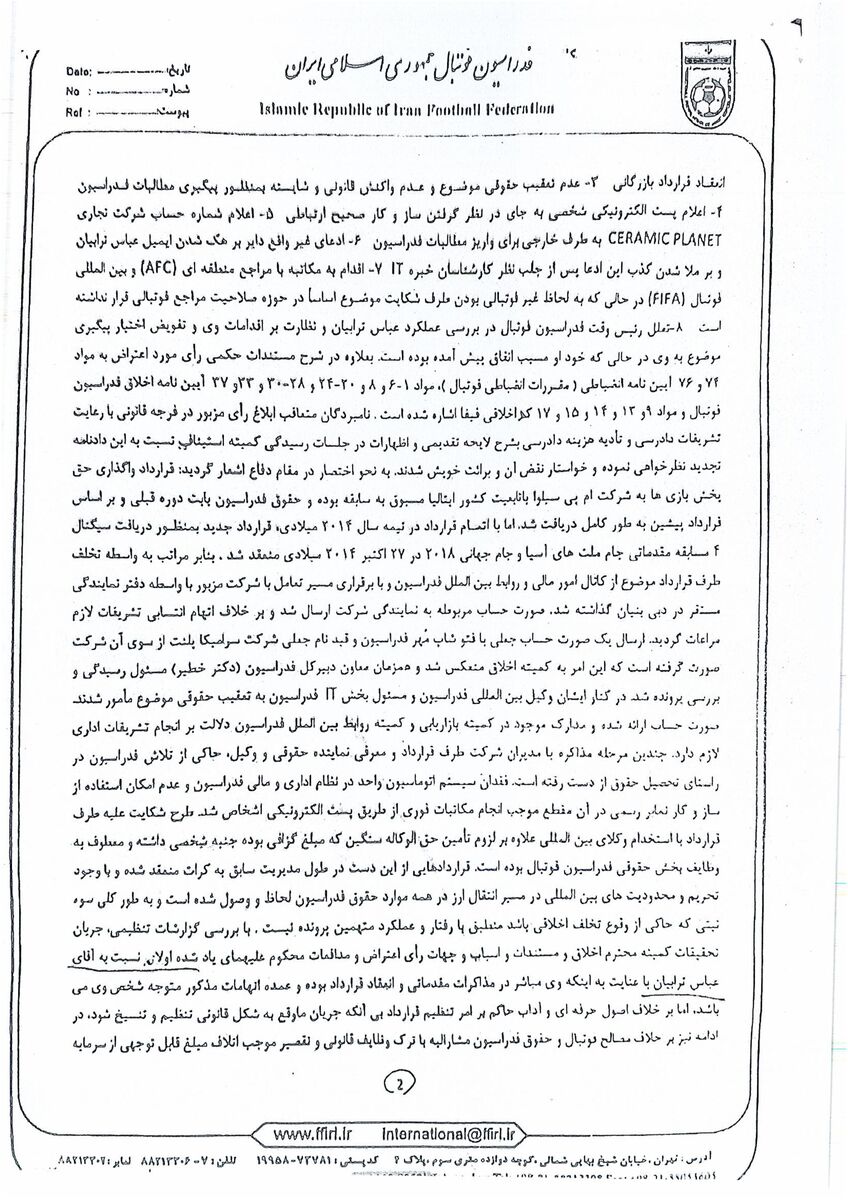 ۹
فدراسیون فوتبال جمهوری اسلامی ایران
Islamic Republic of Iran Football Federation
Date: تاریخ:
No : شماره:
Ref : پیوست:
انعقاد قرارداد بازرگانی ۳- عدم تعقیب حقوقی موضوع و عدم واکنش قانونی و شایسته بمنظور پیگیری مطالبات فدراسیون
۴- اعلام پست الکترونیکی شخصی به جای در نظر گرفتن ساز و کار صحیح ارتباطی ۵- اعلام شماره حساب شرکت تجاری
CERAMIC PLANET به طرف خارجی برای واریز مطالبات فدراسیون ۶- ادعای غیر واقع دایر بر هک شدن ایمیل عباس ترابیان
و بر ملا شدن کذب این ادعا پس از جلب نظر کارشناسان خبره IT ۷- اقدام به مکاتبه با مراجع منطقه ای (AFC) و بین المللی
فوتبال (FIFA) در حالی که به لحاظ غیر فوتبالی بودن طرف شکایت موضوع اساساً در حوزه صلاحیت مراجع فوتبالی قرار نداشته
است ۸-تعلل رئیس وقت فدراسیون فوتبال در بررسی عملکرد عباس ترابیان و نظارت بر اقدامات وی و تفویض اختیار پیگیری
موضوع به وی در حالی که خود او مسبب اتفاق پیش آمده بوده است. بعلاوه در شرح مستندات حکمی رأی مورد اعتراض به مواد
۷۴ و ۷۶ آیین نامه انضباطی ( مقررات انضباطی فوتبال )، مواد ۱-۶ و ۸ و ۲۰-۲۴ و ۲۸-۳۰ و ۳۳و ۳۷ آیین نامه اخلاق فدراسیون
فوتبال و مواد ۹و ۱۳ و ۱۴ و ۱۵ و ۱۷ کداخلاقی فیفا اشاره شده است . نامبردگان متعاقب ابلاغ رأی مزبور در فرجه قانونی با رعایت
تشریفات دادرسی و تأدیه هزینه دادرسی بشرح لایحه تقدیمی و اظهارات در جلسات رسیدگی کمیته استیناف نسبت به این دادنامه
تجدید نظرخواهی نموده و خواستار نقض آن و برائت خویش شدند. به نحو اختصار در مقام دفاع اشعار گردید: قرارداد واگذاری حق
پخش بازی ها به شرکت ام پی سیلوا باتابعیت کشور ایتالیا مسبوق به سابقه بوده و حقوق فدراسیون بابت دوره قبلی و بر اساس
قرارداد پیشین به طور کامل دریافت شد. اما با اتمام قرارداد در نیمه سال ۲۰۱۴ میلادی، قرارداد جدید بمنظور دریافت سیگنال
۴ مسابقه مقدماتی جام ملت های آسیا و جام جهانی ۲۰۱۸ در ۲۷ اکتبر ۲۰۱۴ میلادی منعقد شد . بنابر مراتب به واسطه تخلف
طرف قرارداد موضوع از کانال امور مالی و روابط بین الملل فدراسیون و با برقراری مسیر تعامل با شرکت مزبور با واسطه دفتر نمایندگی
مستقر در دبی بنیان گذاشته شد. صورت حساب مربوطه به نمایندگی شرکت ارسال شد و بر خلاف اتهام انتسابی تشریفات لازم
مراعات گردید. ارسال یک صورت حساب جعلی با فتو شاپ مُهر فدراسیون و قید نام جعلی شرکت سرامیکا پلنت از سوی آن شرکت
صورت گرفته است که این امر به کمیته اخلاق منعکس شد و همزمان معاون دبیرکل فدراسیون (دکتر خطیر) مسئول رسیدگی و
بررسی پرونده شد. در کنار ایشان وکیل بین المللی فدراسیون و مسئول بخش IT فدراسیون به تعقیب حقوقی موضوع مأمور شدند.
صورت حساب ارائه شده و مدارک موجود در کمیته بازاریابی و کمیته روابط بین الملل فدراسیون دلالت بر انجام تشریفات اداری
لازم دارد. چندین مرحله مذاکره با مدیران شرکت طرف قرارداد و معرفی نماینده حقوقی و وکیل، حاکی از تلاش فدراسیون در
راستای تحصیل حقوق از دست رفته است. فقدان سیستم اتوماسیون واحد در نظام اداری و مالی فدراسیون و عدم امکان استفاده از
ساز و کار نمابر رسمی در آن مقطع موجب انجام مکاتبات فوری از طریق پست الکترونیکی اشخاص شد. طرح شکایت علیه طرف
قرارداد با استخدام وکلای بین المللی علاوه بر لزوم تأمین حق الوکاله سنگین که مبلغ گزافی بوده جنبه شخصی داشته و معطوف به
وظایف بخش حقوقی فدراسیون فوتبال بوده است. قراردادهایی از این دست در طول مدیریت سابق به کرات منعقد شده و با وجود
تحریم و محدودیت های بین المللی در مسیر انتقال ارز در همه موارد حقوق فدراسیون لحاظ و وصول شده است و به طور کلی سوء
نیتی که حاکی از وقوع تخلف اخلاقی باشد منطبق با رفتار و عملکرد متهمین پرونده نیست . با بررسی گزارشات تنظیمی، جریان
تحقیقات کمیته محترم اخلاق و مستندات و اسباب و جهات رأی اعتراض و مدافعات محکوم علیهمای یاد شده اولان نسبت به آقای
عباس ترابیان با عنایت به اینکه وی مباشر در مذاکرات مقدماتی و انعقاد قرارداد بوده و عمده اتهامات مذکور متوجه شخص وی می
باشد. اما بر خلاف اصول حرفه ای و آداب حاکم بر امر تنظیم قرارداد بی آنکه جریان ماوقع به شکل قانونی تنظیم و تنسیخ شود، در
ادامه نیز بر خلاف مصالح فوتبال و حقوق فدراسیون مشارالیه با ترک وظایف قانونی و تقصیر موجب اتلاف مبلغ قابل توجهی از سرمایه
2
www.ffiri.ir international@ffiri.ir
آدرس : تهران ، خیابان شیخ بهایی شمالی ، کوچه دوازده متری سوم ، پلاک ۴ کدپستی : ۷۳۷۸۱-۱۹۹۵۸ تلفن : ۷-۸۸۲۱۳۳۰۶ نمابر : ۸۸۲۱۳۳۰۲